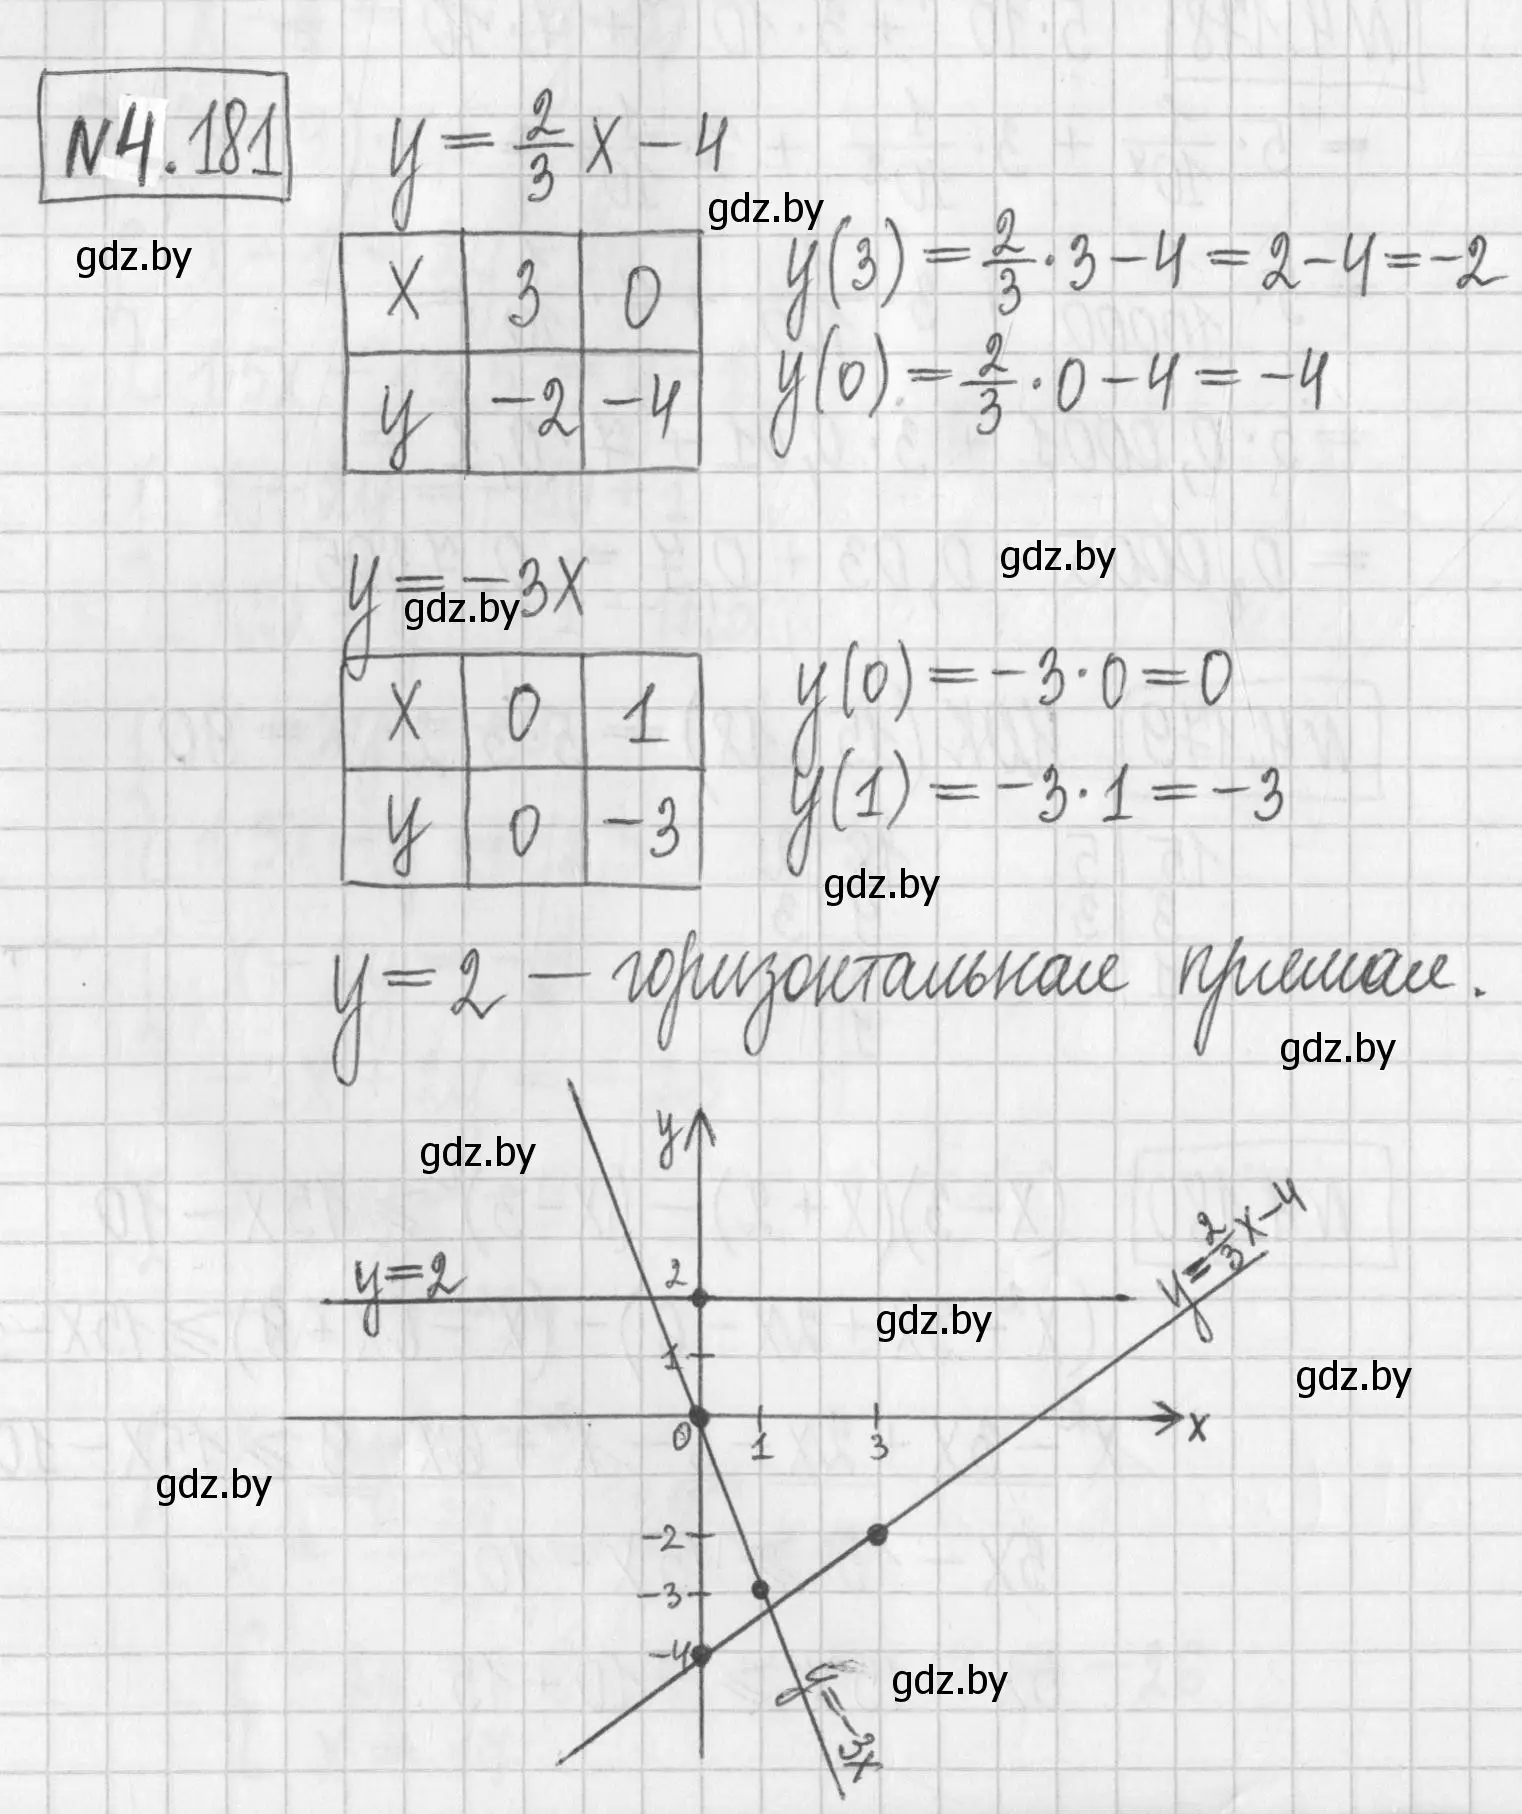 №4.181 y = 2/3 x − 4
gdz.by
gdz.by
x 3 0
y −2 −4
y(3) = 2/3 · 3 − 4 = 2 − 4 = −2
y(0) = 2/3 · 0 − 4 = −4
gdz.by
y = −3x
gdz.by
x 0 1
y 0 −3
y(0) = −3 · 0 = 0
y(1) = −3 · 1 = −3
gdz.by
y = 2 — горизонтальная прямая.
gdz.by
y
gdz.by
y = 2/3 x − 4
y = 2
2
gdz.by
1
gdz.by
0 1 3 x
gdz.by
−2
−3
−4
gdz.by
y = −3x